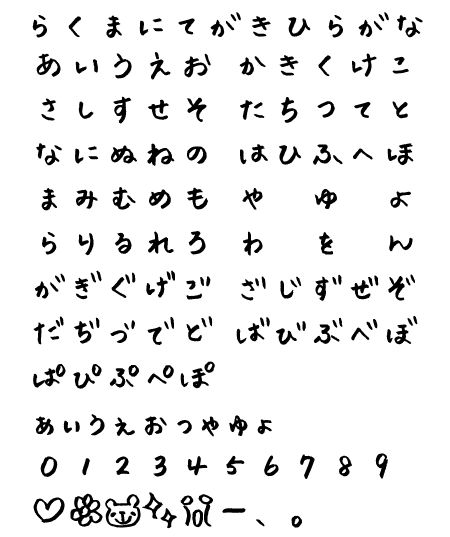 らくまにてがきひらがな
あいうえお かきくけこ
さしすせそ たちつてと
なにぬねの はひふへほ
まみむめも や ゆ よ
らりるれろ わ を ん
がぎぐげご ざじずぜぞ
だぢづでど ばびぶべぼ
ぱぴぷぺぽ
ぁぃぅぇぉっゃゅょ
0 1 2 3 4 5 6 7 8 9
ー 、 。